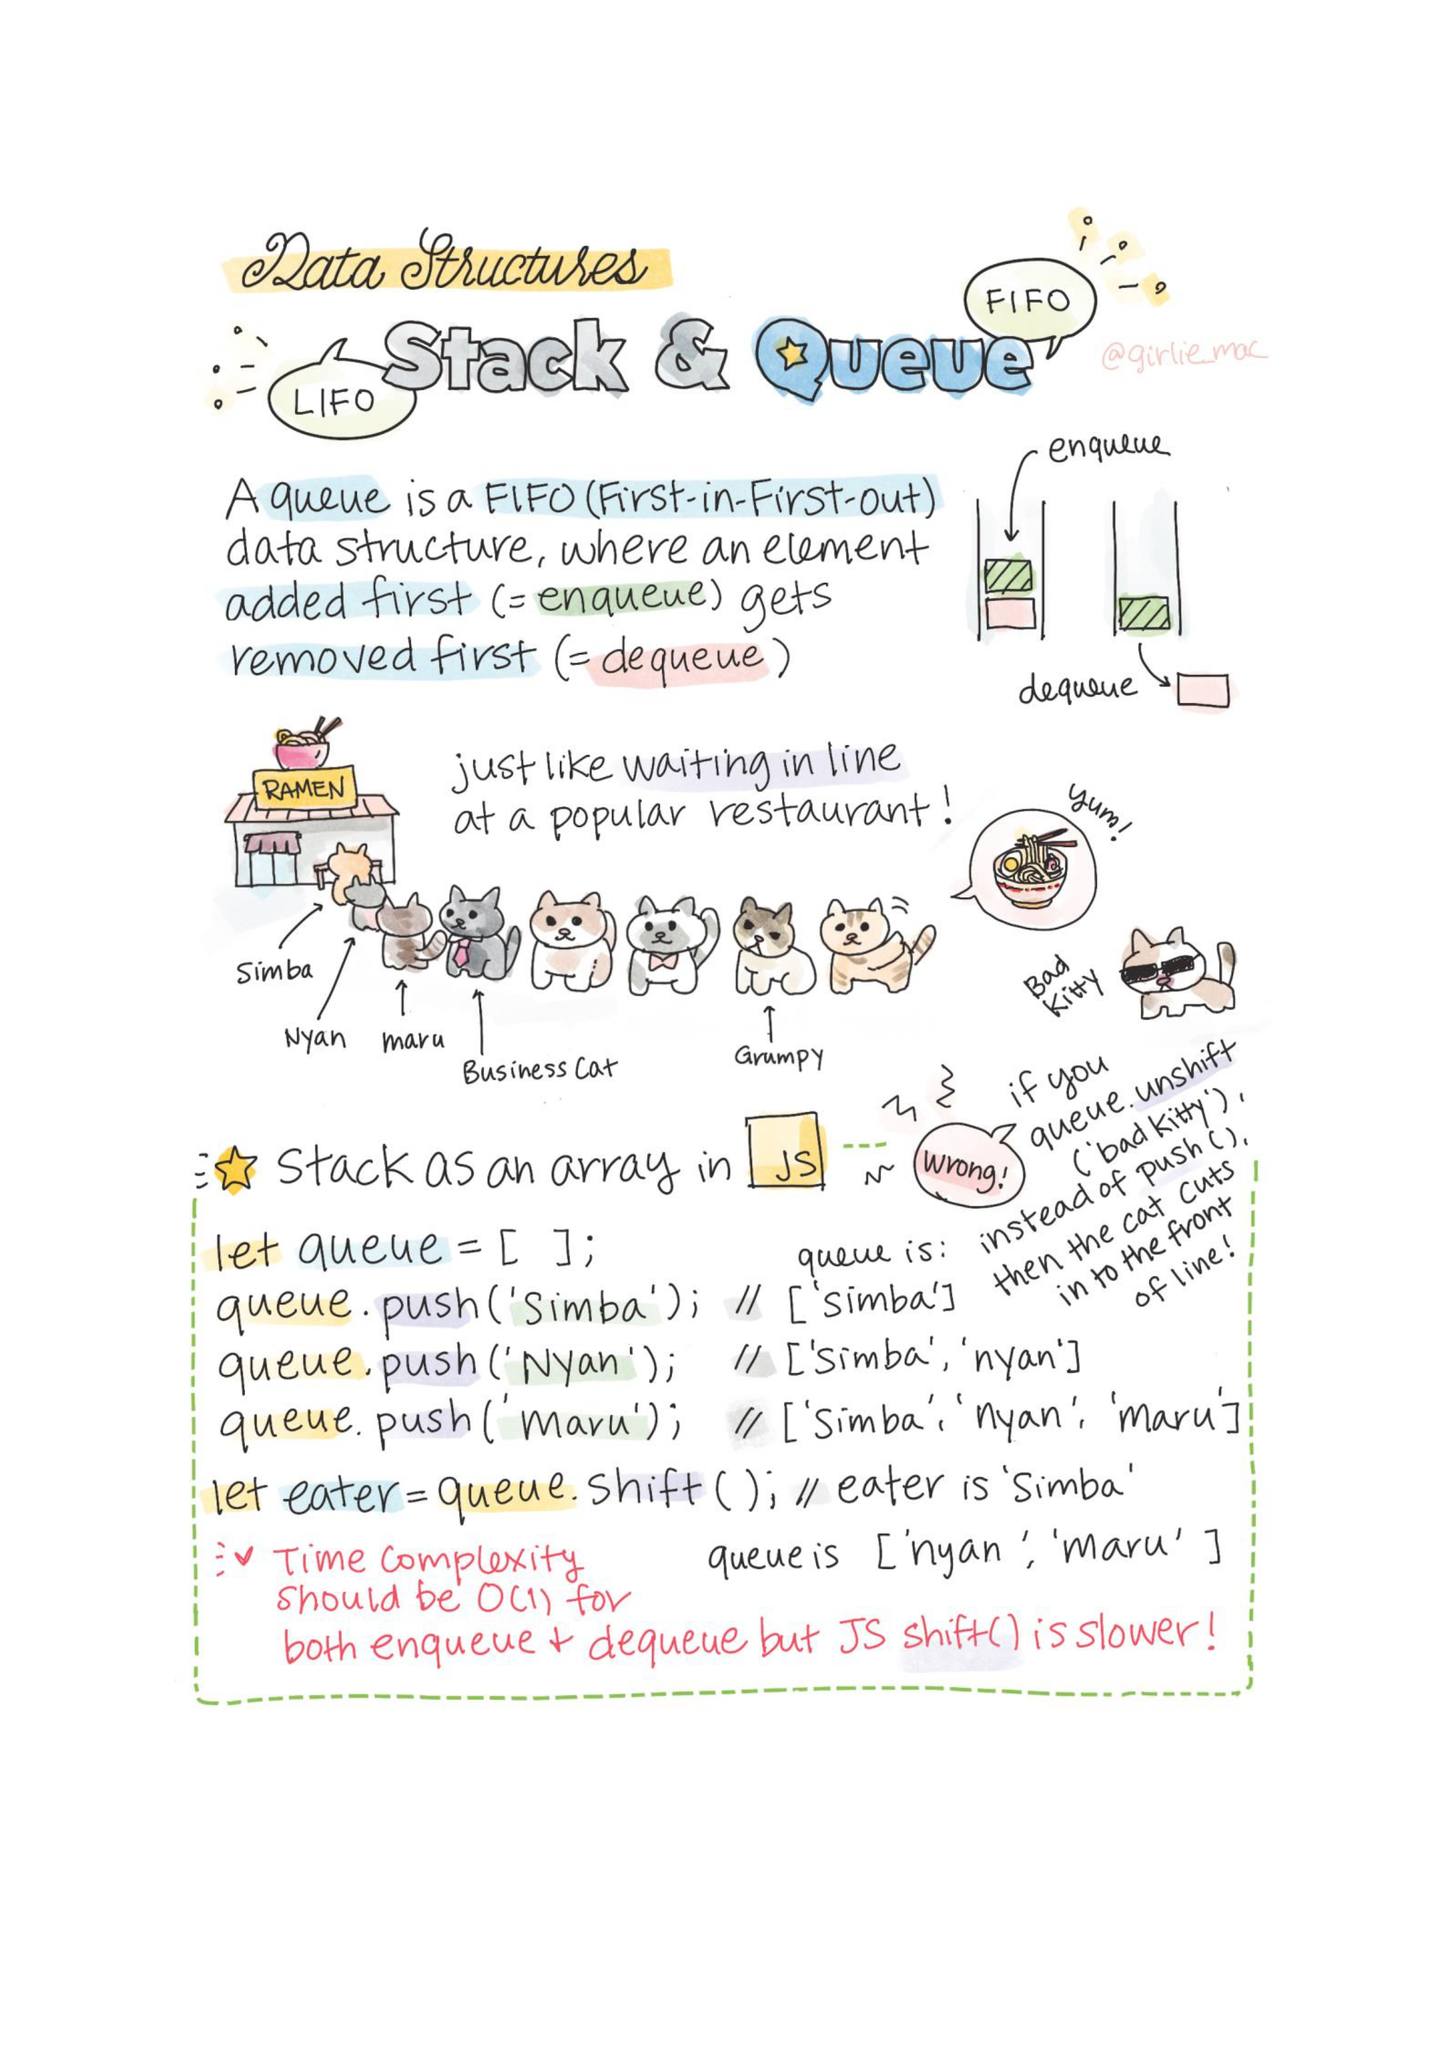 Data Structures
Stack & Queue
LIFO
FIFO
@girlie_mac
A queue is a FIFO (First-in-First-out)
data structure, where an element
added first (= enqueue) gets
removed first (= dequeue)
enqueue
dequeue
RAMEN
just like waiting in line
at a popular restaurant!
yum!
Simba
Nyan
maru
Business Cat
Grumpy
Bad
Kitty
if you
queue.unshift
('bad kitty'),
instead of push(),
then the cat cuts
in to the front
of line!
Wrong!
Stack as an array in JS
let queue = [ ];
queue is:
queue.push('Simba'); // ['simba']
queue.push('Nyan'); // ['simba', 'nyan']
queue.push('maru'); // ['simba', 'nyan', 'maru']
let eater = queue.shift(); // eater is 'Simba'
queue is ['nyan', 'maru' ]
Time Complexity
should be O(1) for
both enqueue + dequeue but JS shift() is slower!